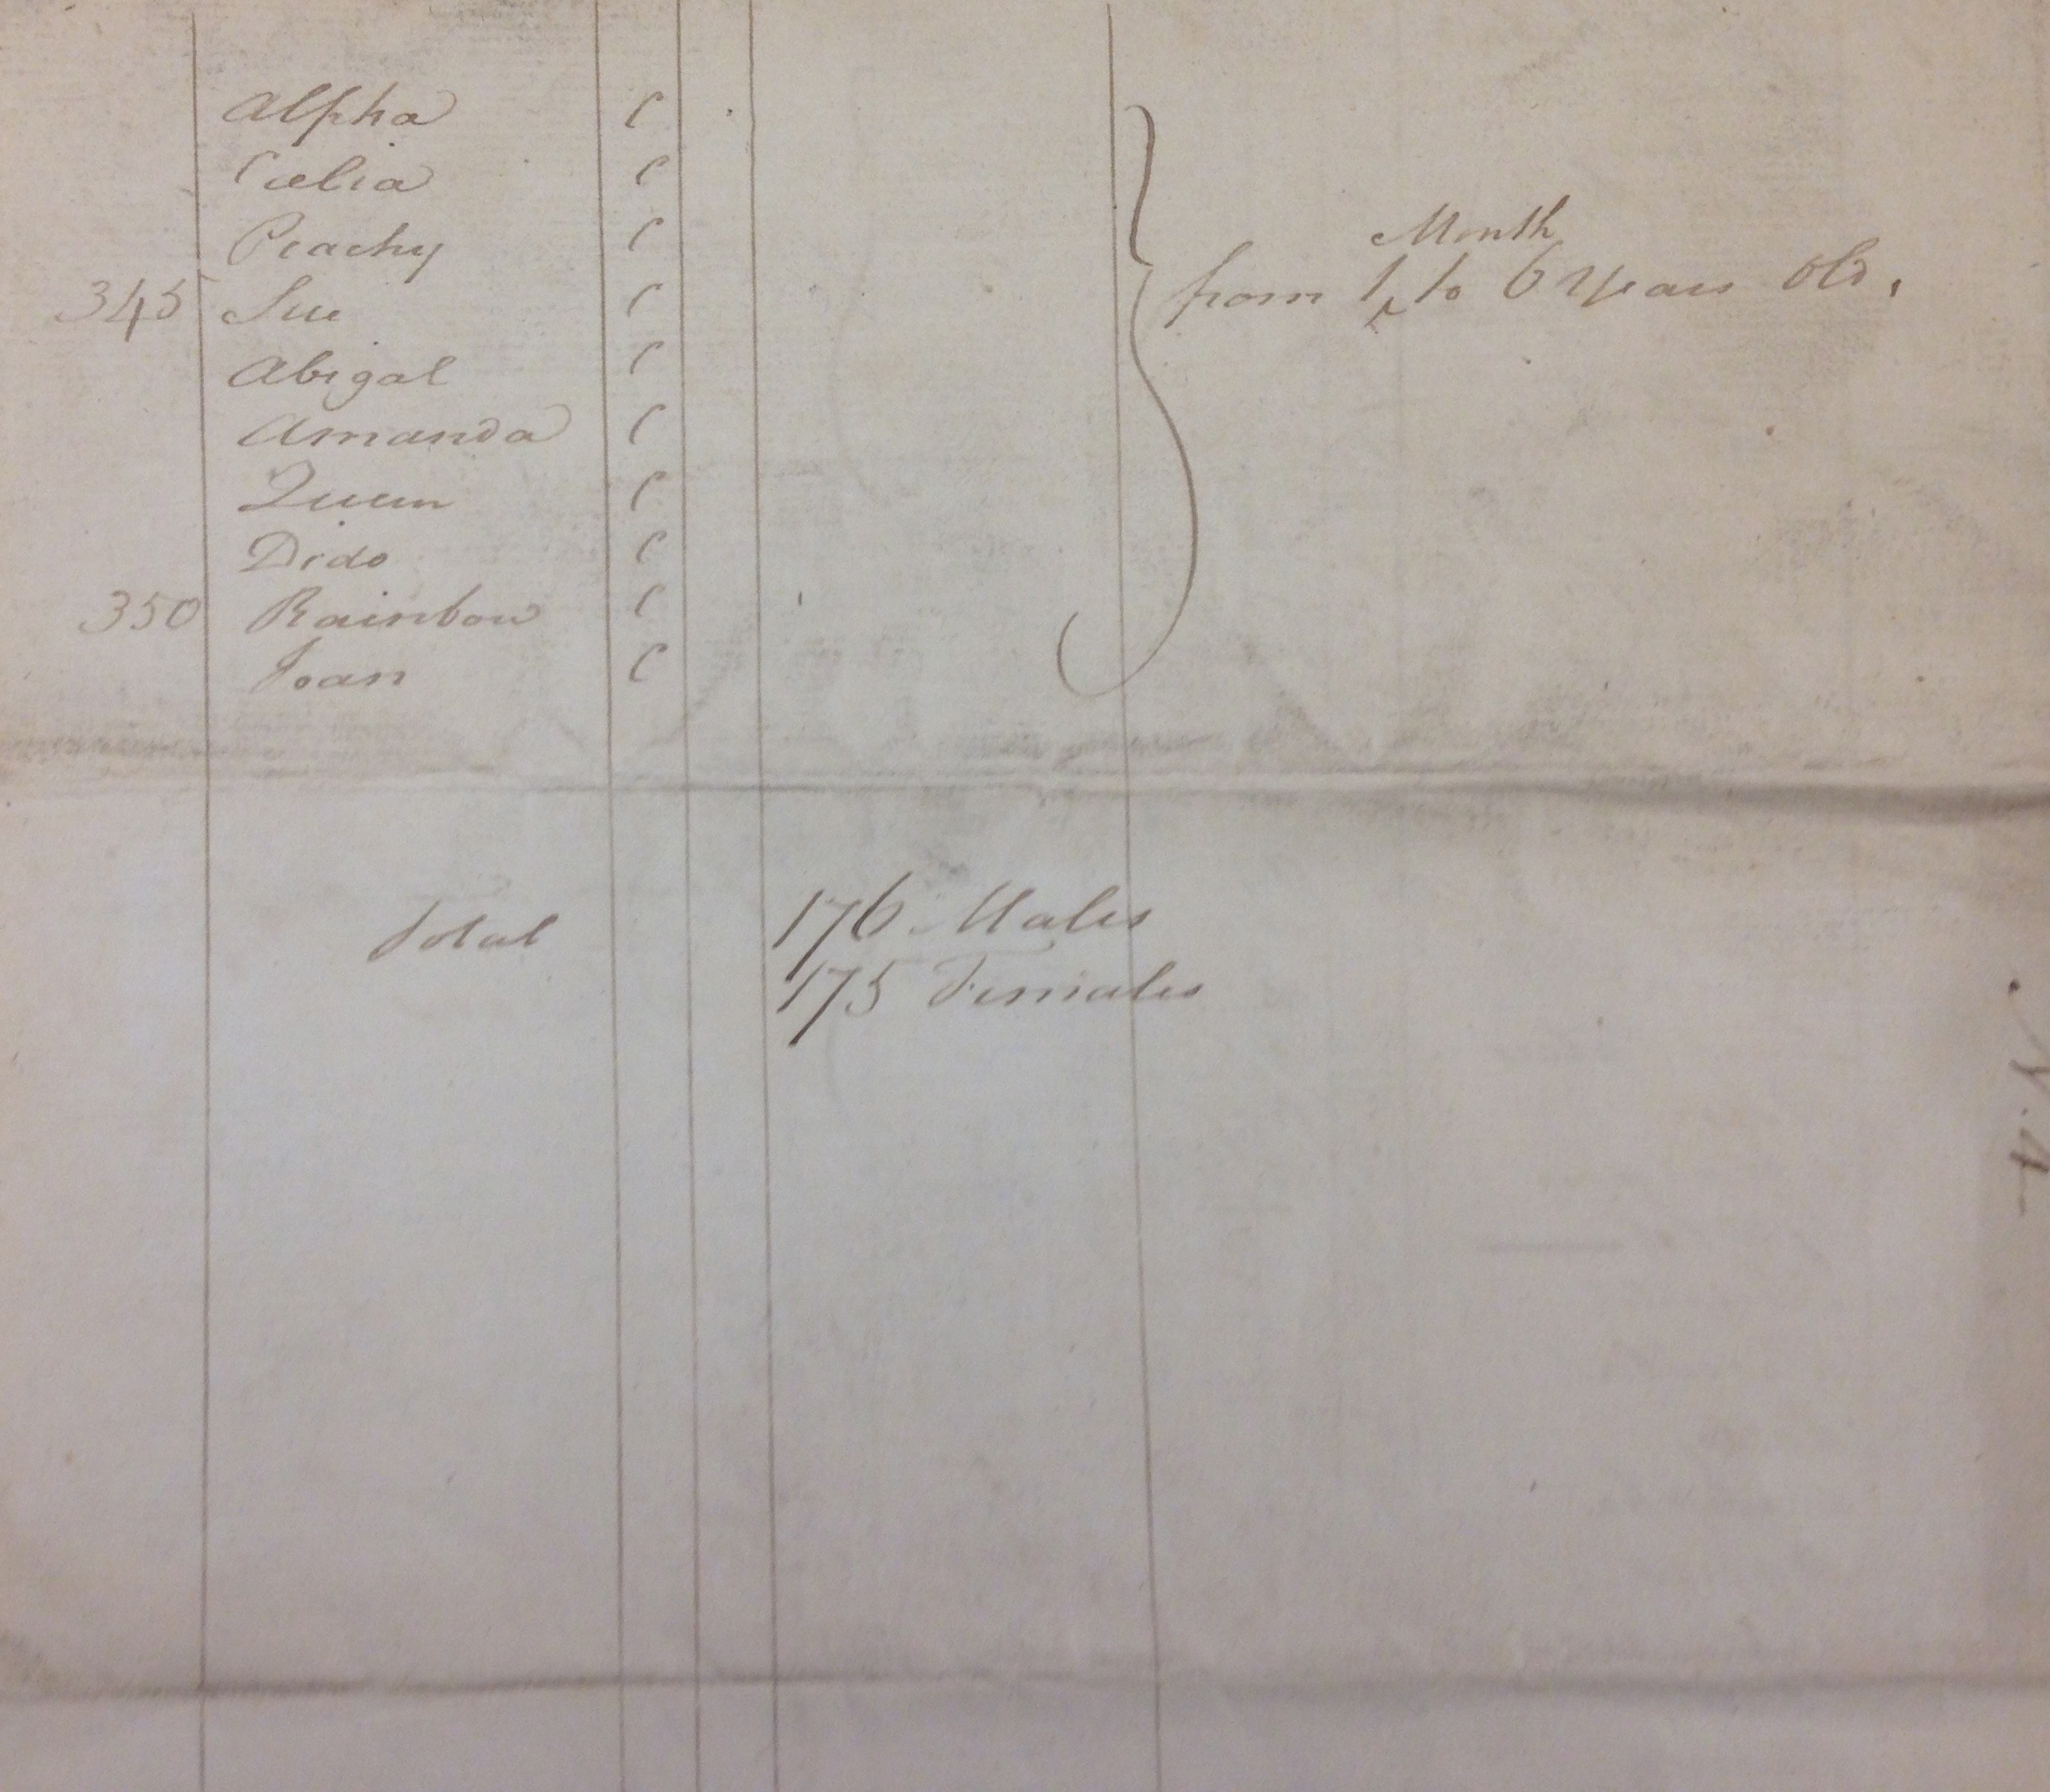 Alpha C
Cælia C
Peachy C
Month
345 Sue C from 1 ‸ to 6 Years Old.
Abigal C
Amanda C
Queen C
Dido C
350 Rainbow C
Joan C
Total 176 Males
175 Females